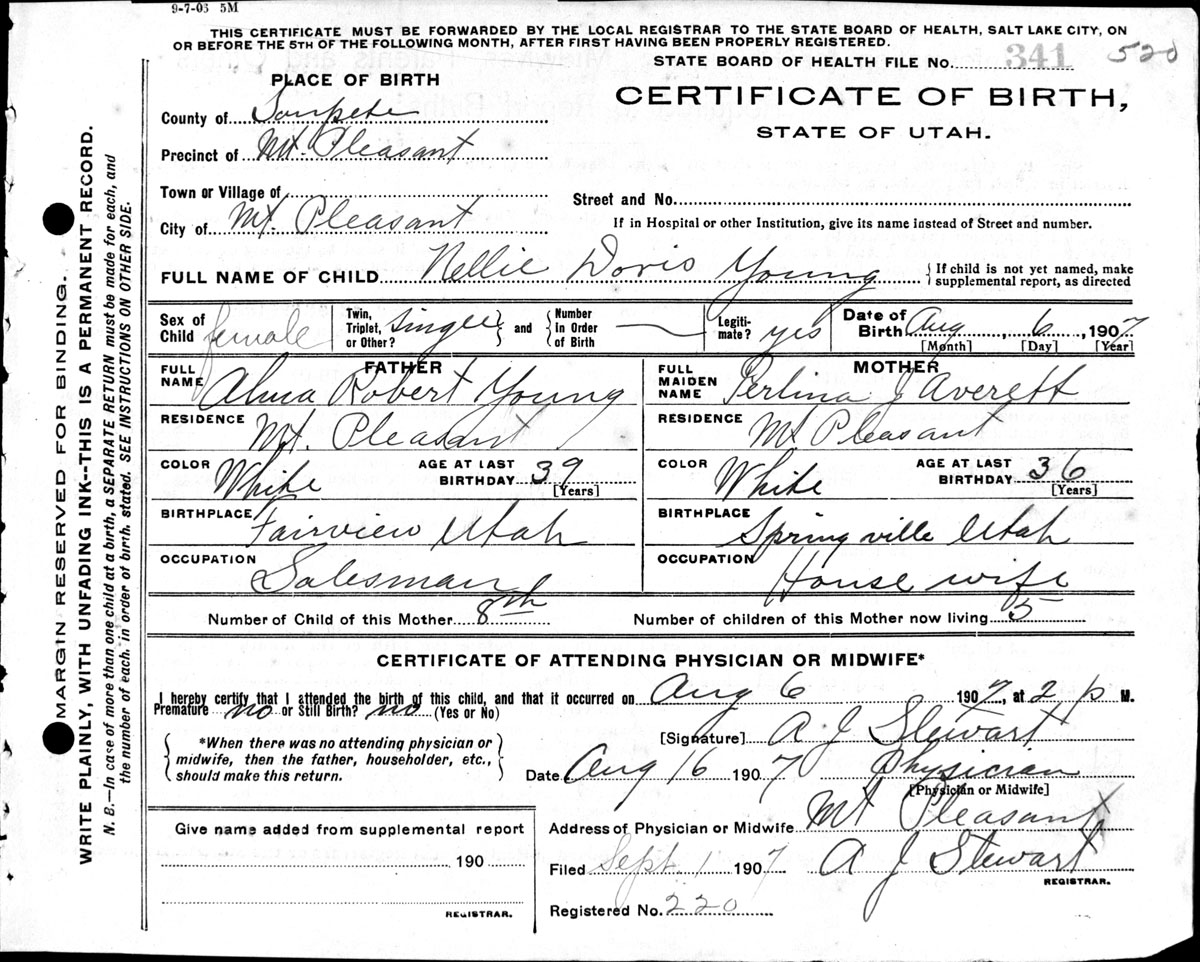 9-7-06 5M
THIS CERTIFICATE MUST BE FORWARDED BY THE LOCAL REGISTRAR TO THE STATE BOARD OF HEALTH, SALT LAKE CITY, ON
OR BEFORE THE 5TH OF THE FOLLOWING MONTH, AFTER FIRST HAVING BEEN PROPERLY REGISTERED.
STATE BOARD OF HEALTH FILE No. 341 520
PLACE OF BIRTH
CERTIFICATE OF BIRTH,
STATE OF UTAH.
County of Sanpete
Precinct of Mt. Pleasant
Town or Village of
Street and No.
City of Mt. Pleasant
If in Hospital or other Institution, give its name instead of Street and number.
FULL NAME OF CHILD Nellie Doris Young
{If child is not yet named, make
supplemental report, as directed
Sex of Child female
Twin, Triplet, or Other? Single } and { Number In Order of Birth —
Legiti-mate? yes
Date of Birth Aug 6, 1907
[Month] [Day] [Year]
FATHER
FULL NAME Alma Robert Young
RESIDENCE Mt. Pleasant
COLOR White AGE AT LAST BIRTHDAY 39 [Years]
BIRTHPLACE Fairview Utah
OCCUPATION Salesman
MOTHER
FULL MAIDEN NAME Perlina J Averett
RESIDENCE Mt Pleasant
COLOR White AGE AT LAST BIRTHDAY 36 [Years]
BIRTHPLACE Springville Utah
OCCUPATION House wife
Number of Child of this Mother 8th Number of children of this Mother now living 5
CERTIFICATE OF ATTENDING PHYSICIAN OR MIDWIFE*
I hereby certify that I attended the birth of this child, and that it occurred on Aug 6 1907, at 2 p M.
Premature no or Still Birth? no (Yes or No)
{*When there was no attending physician or
midwife, then the father, householder, etc.,
should make this return.}
[Signature] A J Stewart
Date Aug 16 1907 Physician
[Physician or Midwife]
Give name added from supplemental report
190
REGISTRAR.
Address of Physician or Midwife Mt Pleasant
Filed Sept. 1 1907 A J Stewart
REGISTRAR.
Registered No. 220
MARGIN RESERVED FOR BINDING.
WRITE PLAINLY, WITH UNFADING INK--THIS IS A PERMANENT RECORD.
N. B.—In case of more than one child at a birth, a SEPARATE RETURN must be made for each, and
the number of each, in order of birth, stated. SEE INSTRUCTIONS ON OTHER SIDE.